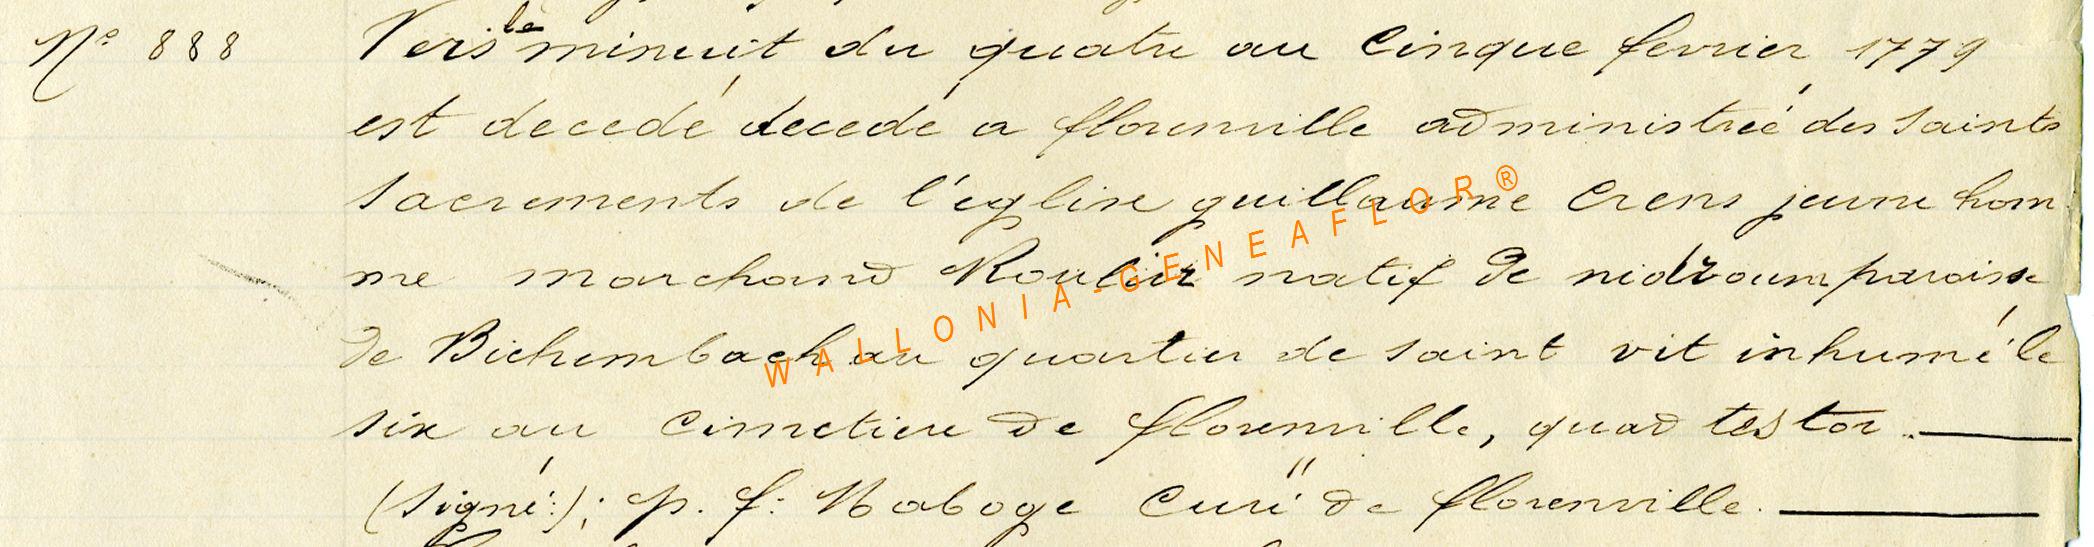 N° 888 Vers le minuit du quatre au cinque fevrier 1779
est decedé decedé a florenville administreé des saints
sacrements de l'eglise guillaume Crens jeune hom
me marchand Roulier natif de nidroum paroisse
de Bichembach au quartier de saint vit inhumé le
six au cimetiere de florenville, quod testor.
(signé:); p. f: Naboge Curé de florenville.
WALLONIA-GENEAFLOR®